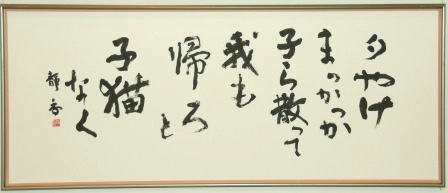 夕やけ
まっかっか
子ら散って
我も
帰ろと
子猫
なく
静香